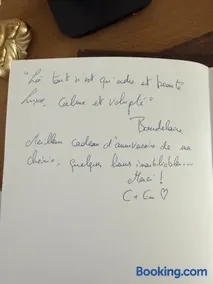 "Là tout n'est qu'ordre et beauté
Luxe, calme et volupté"
Baudelaire
Meilleur cadeau d'anniversaire de ma
chérie, quelques jours inoubliables...
Merci !
C + Em ♡
Booking.com